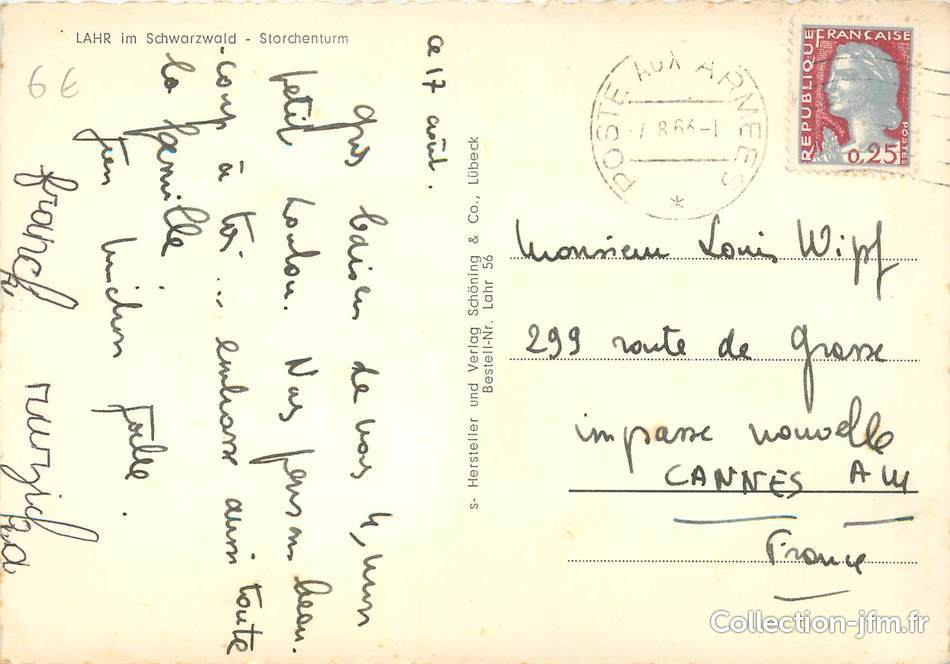 LAHR im Schwarzwald - Storchenturm
6E
ce 17 août.
gros baisers de nous 4, mon
petit Loulou. Nous pensons beau-
-coup à toi... embrasse aussi toute
la famille
Michou Joëlle.
Franck
s- Hersteller und Verlag Schöning & Co., Lübeck
Bestell-Nr. Lahr 56
POSTE AUX ARMEES
8.63-1
*
REPUBLIQUE FRANÇAISE
0,25
POSTES
Monsieur Louis Wipf
299 route de Grasse
impasse nouvelle
CANNES AM
France
Collection-jfm.fr